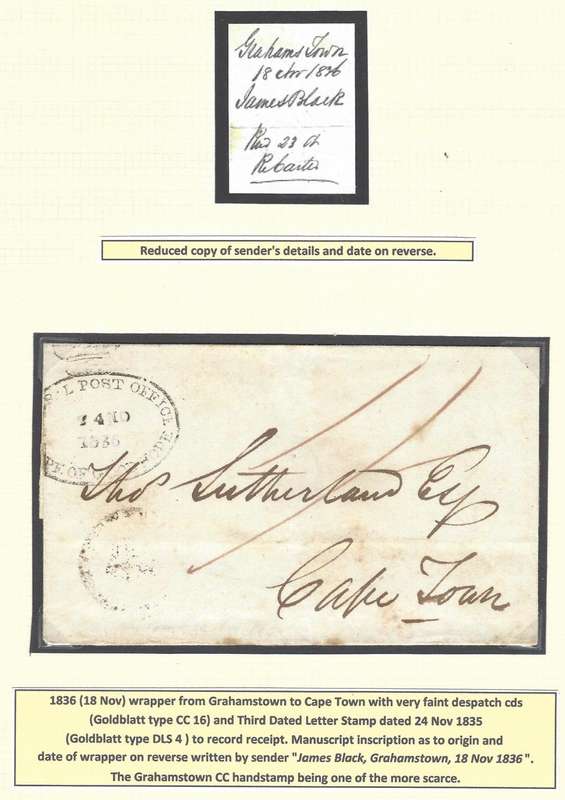 Grahams Town
18 Nov 1836
James Black
23
Reduced copy of sender's details and date on reverse.
L POST OFFICE
24 NO
1836
PE OF
Thos Sutherland Esq
Cape Town
1836 (18 Nov) wrapper from Grahamstown to Cape Town with very faint despatch cds
(Goldblatt type CC 16) and Third Dated Letter Stamp dated 24 Nov 1835
(Goldblatt type DLS 4 ) to record receipt. Manuscript inscription as to origin and
date of wrapper on reverse written by sender "James Black, Grahamstown, 18 Nov 1836".
The Grahamstown CC handstamp being one of the more scarce.